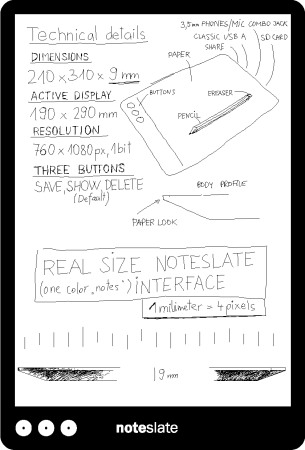 Technical details
3,5mm PHONES/MIC COMBO JACK
CLASSIC USB A
SD CARD
SHARE
DIMENSIONS
210 x 310 x 9 mm
PAPER
ACTIVE DISPLAY
190 x 290 mm
BUTTONS
EREASER
PENCIL
RESOLUTION
760 x 1080 px, 1 bit
THREE BUTTONS
SAVE, SHOW, DELETE
(Default)
BODY PROFILE
PAPER LOOK
REAL SIZE NOTESLATE
(one color "notes") INTERFACE
1 milimeter = 4 pixels
9 mm
noteslate